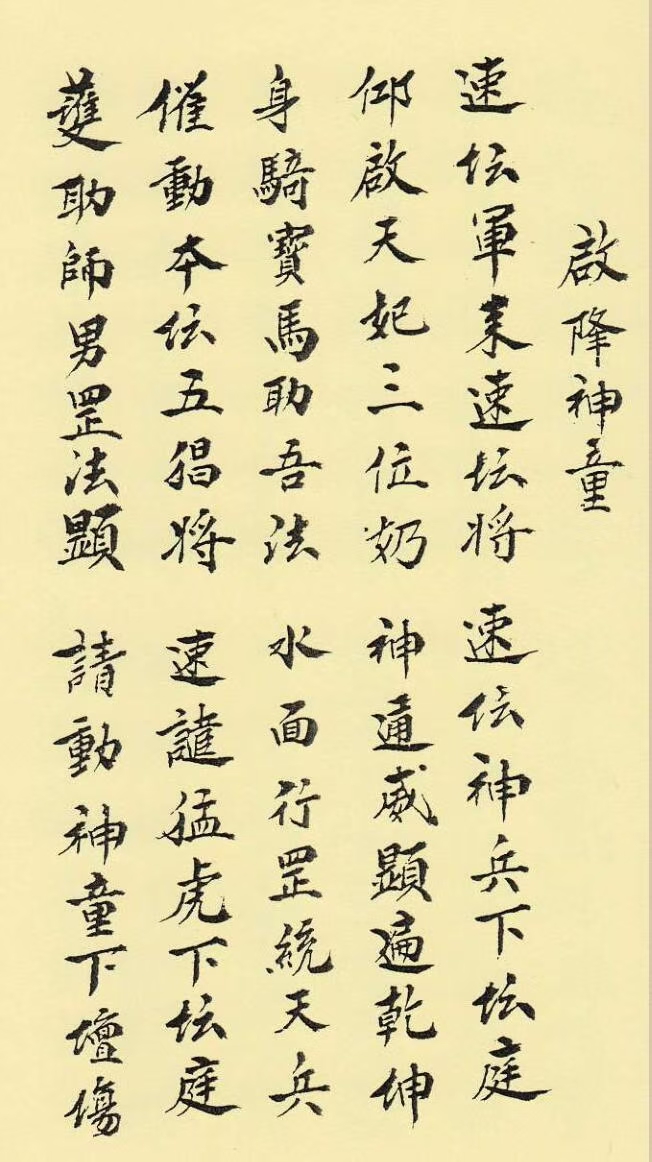 啟降神童
速坛軍来速坛将 速坛神兵下坛庭
仰啟天妃三位奶 神通威顕遍乾坤
身騎寶馬助吾法 水面行罡統天兵
催動本坛五猖将 速讂猛虎下坛庭
䕶助師男罡法顕 請動神童下壇傷